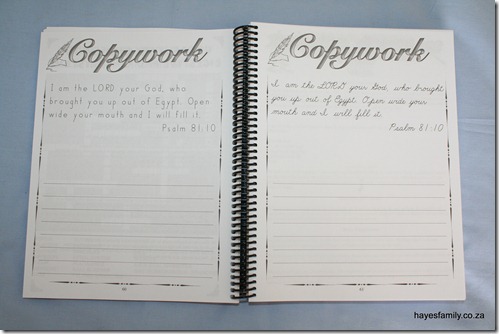 Copywork
I am the LORD your God, who
brought you up out of Egypt. Open
wide your mouth and I will fill it.
Psalm 81:10
Copywork
I am the LORD your God, who brought
you up out of Egypt. Open wide your
mouth and I will fill it.
Psalm 81:10
hayesfamily.co.za